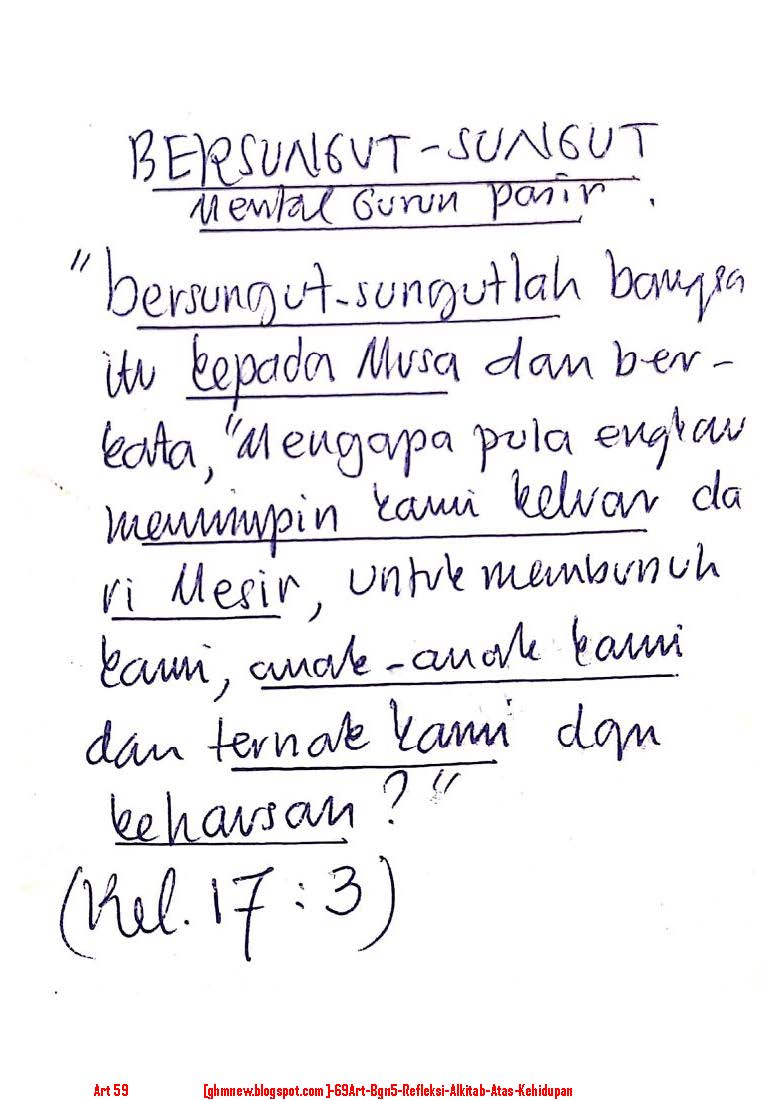 BERSUNGUT-SUNGUT
Mental Gurun pasir.
"bersungut-sungutlah bangsa
itu kepada Musa dan ber-
kata, "Mengapa pula engkau
memimpin kami keluar da
ri Mesir, untuk membunuh
kami, anak-anak kami
dan ternak kami dgn
kehausan?"
(Kel. 17:3)
Art 59 [ghmnew.blogspot.com]-69Art-Bgn5-Refleksi-Alkitab-Atas-Kehidupan